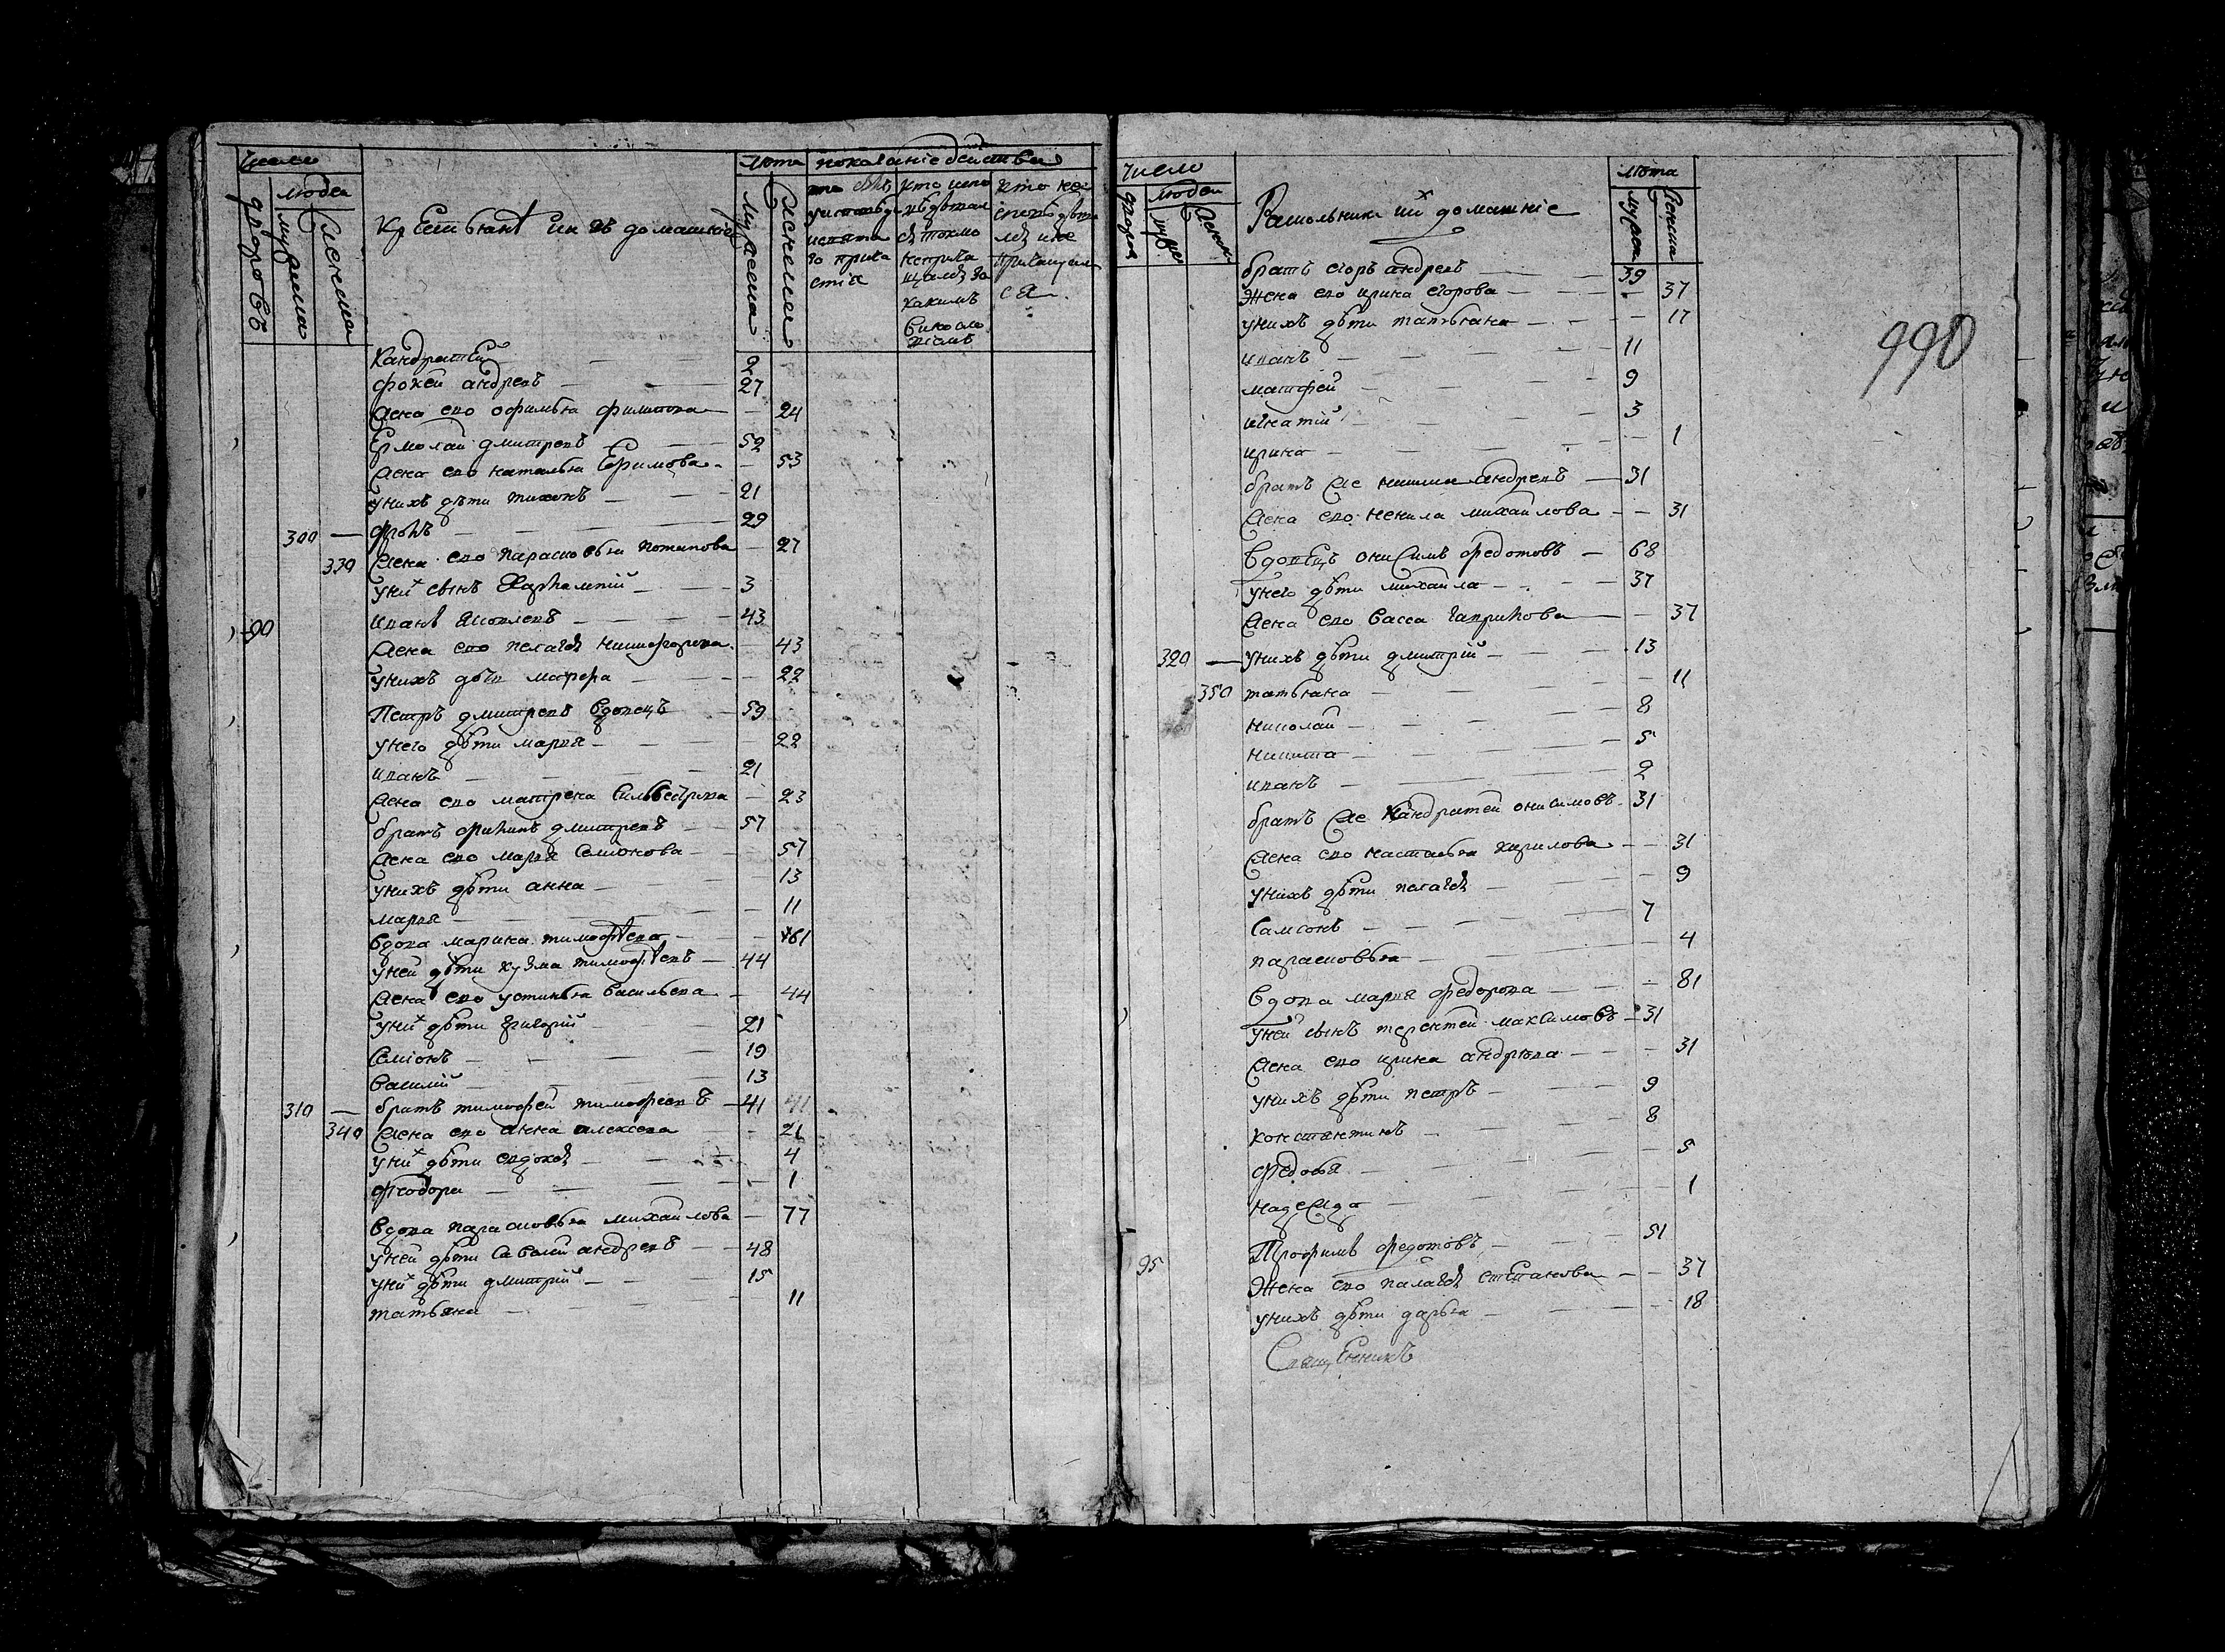 Число
людеи
дворовъ
мужеска
женска
Крестьянѣ и ихъ домашние
Лѣта
мужеска
женска
показание действа
кто испо
вѣдывал
ся токмо
не прича
щался за
какимъ
винослο
виемъ
Кандратей 2
Фокеи андревъ 27
Жена ево офимья филипова 24
Ермолаи дмитревъ 52
Жена ево наталья Ефимова 53
У нихъ дѣти тихонъ 21
300 — Фролъ 29
330 Жена ево парасковья потапова 27
У них сынъ Харлампий 3
90 иванъ Яковлевъ 43
Жена ево пелагея никифорова 43
У нихъ дѣти мафра 22
Петръ дмитревъ вдовецъ 59
у него дѣти марья 22
иванъ 21
Жена ево матрена Сильвестрова 23
братъ филипъ дмитревъ 57
Жена ево марья Семионова 57
у нихъ дѣти анна 13
марья 11
вдова марина тимофѣева 61
у ней дѣти кузма тимофѣевъ 44
Жена ево устинья васильева 44
у них дѣти григорий 21
Семионъ 19
василий 13
310 — братъ тимофей тимофеевъ 41 41
340 Жена ево анна алексева 21
у них дѣти евдокея 4
феодора 1
вдова парасковья михаилова 77
у ней дѣти Савелий андревъ 48
у них дѣти дмитрий 15
татьяна 11
Число
людеи
двора
муже
женск
Раскольники и их домашние
Лѣта
мужеска
женска
990
братъ егоръ андревъ 39
Жена ево ирина егорова 37
у нихъ дѣти татьяна 17
иванъ 11
матфей 9
игнатий 3
ирина 1
братъ же никита андревъ 31
Жена ево ненила михаилова 31
вдовецъ онисимъ федотовъ 68
у него дѣти михаила 37
Жена ево васса гаврилова 37
320 — у нихъ дѣти дмитрий 13
350 татьяна 11
николай 8
никита 5
иванъ 2
братъ же Кандратей онисимовъ 31
Жена ево настасья кирилова 31
у нихъ дѣти пелагея 9
Самсонъ 7
парасковья 4
вдова марья федорова 81
у ней сынъ терентей максимовъ 31
Жена ево ирина андрѣева 31
у нихъ дѣти петръ 9
константинъ 8
федосья 5
надежда 1
95 Трофимъ федотовъ 51
Жена ево палагея степанова 37
у нихъ дѣти дарья 18
Священникъ